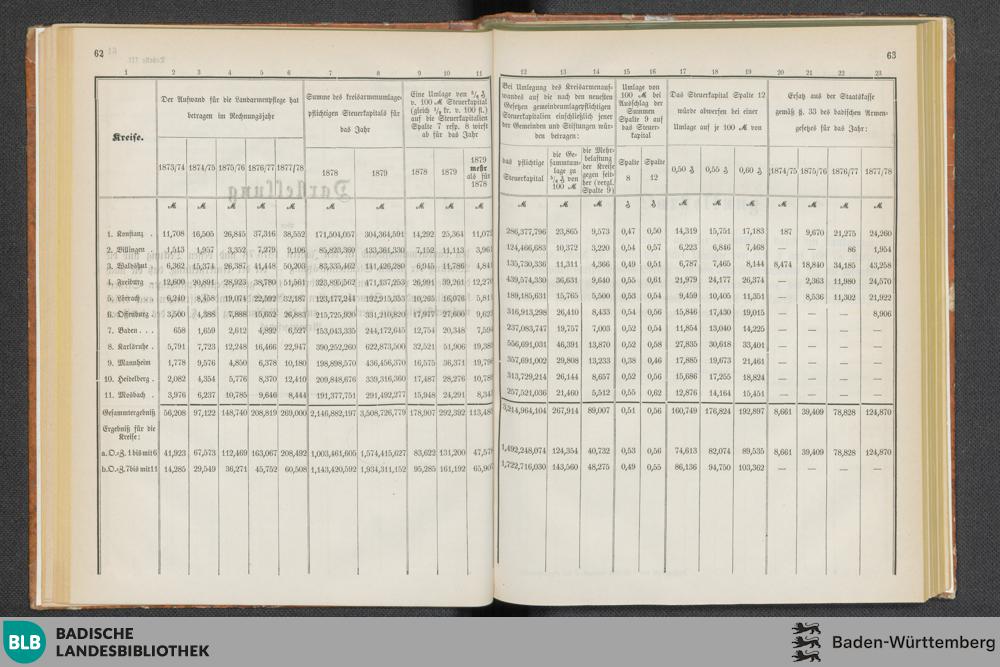 62
63
1 2 3 4 5 6 7 8 9 10 11 12 13 14 15 16 17 18 19 20 21 22 23
Kreise.
Der Aufwand für die Landarmenpflege hat
betragen im Rechnungsjahr
Summe des kreisarmenumlage-
pflichtigen Steuerkapitals für
das Jahr
Eine Umlage von
v. 100 ℳ Steuerkapital
auf die Steuerkapitalien
Spalte 7 resp. 8 wirft
ab für das Jahr
Bei Umlegung des Kreisarmenauf-
wandes auf die nach den neuesten
Gesetzen gemeindeumlagepflichtigen
Steuerkapitalien einschließlich jener
der Gemeinden und Stiftungen wür-
den betragen:
Umlage von
100 ℳ bei
Ausschlag der
Summen
Spalte 9 auf
das Steuer-
kapital
Das Steuerkapital Spalte 12
würde abwerfen bei einer
Umlage auf je 100 ℳ von
Ersatz aus der Staatskasse
gemäß §. 33 des badischen Armen-
gesetzes für das Jahr:
1873/74 1874/75 1875/76 1876/77 1877/78 1878 1879 1878 1879
1879
mehr
als für
1878
das pflichtige
Steuerkapital
die Ge-
sammtum-
lage zu
von
100 ℳ
die Mehr-
belastung
der Kreise
gegen seit-
her (vergl.
Spalte 9)
Spalte
8
Spalte
12
0,50 ₰ 0,55 ₰ 0,60 ₰ 1874/75 1875/76 1876/77 1877/78
1. Konstanz . 11,708 16,505 26,845 37,316 38,552 171,504,057 304,364,591 14,292 25,364 286,377,796 23,865 9,573 0,47 0,50 14,319 15,751 17,183 187 9,670 21,275 24,260
2. Villingen . 1,513 1,957 3,352 7,279 9,106 85,823,360 133,361,330 7,152 11,113 124,466,683 10,372 3,220 0,54 0,57 6,223 6,846 7,468 — — 86 1,954
3. Waldshut 6,362 15,374 26,387 41,448 50,203 83,335,462 141,426,280 6,945 11,786 135,730,336 11,311 4,366 0,49 0,51 6,787 7,465 8,144 8,474 18,840 34,185 43,258
4. Freiburg 12,600 20,891 28,923 38,780 51,561 323,895,562 471,137,253 26,991 39,261 439,574,330 36,631 9,640 0,55 0,61 21,979 24,177 26,374 — 2,363 11,980 24,570
5. Lörrach 6,240 8,458 19,074 22,592 32,187 123,177,244 192,915,353 10,265 16,076 189,185,631 15,765 5,500 0,53 0,54 9,459 10,405 11,351 — 8,536 11,302 21,922
6. Offenburg 3,500 4,388 7,888 15,652 26,883 215,725,930 331,210,820 17,977 27,600 316,913,298 26,410 8,433 0,54 0,56 15,846 17,430 19,015 — — — 8,906
7. Baden . . . 658 1,659 2,612 4,892 6,527 153,043,335 244,172,645 12,754 20,348 237,083,747 19,757 7,003 0,52 0,54 11,854 13,040 14,225 — — — —
8. Karlsruhe . 5,791 7,723 12,248 16,466 22,947 390,252,260 622,873,500 32,521 51,906 556,691,031 46,391 13,870 0,52 0,58 27,835 30,618 33,401 — — — —
9. Mannheim 1,778 9,576 4,850 6,378 10,180 198,898,570 436,456,370 16,575 36,371 357,691,002 29,808 13,233 0,38 0,46 17,885 19,673 21,461 — — — —
10. Heidelberg . 2,082 4,354 5,776 8,370 12,410 209,848,676 339,316,360 17,487 28,276 313,729,214 26,144 8,657 0,52 0,56 15,686 17,255 18,824 — — — —
11. Mosbach . 3,976 6,237 10,785 9,646 8,444 191,377,751 291,492,277 15,948 24,291 257,521,036 21,460 5,512 0,55 0,62 12,876 14,164 15,451 — — — —
Gesammtergebniß 56,208 97,122 148,740 208,819 269,000 2,146,882,197 3,508,726,779 178,907 292,392 113,485 3,214,964,104 267,914 89,007 0,51 0,56 160,749 176,824 192,897 8,661 39,409 78,828 124,870
Ergebniß für die
Kreise:
a. O.-Z. 1 bis mit 6 41,923 67,573 112,469 163,067 208,492 1,003,461,605 1,574,415,627 83,622 131,200 1,492,248,074 124,354 40,732 0,53 0,56 74,613 82,074 89,535 8,661 39,409 78,828 124,870
b. O.-Z. 7 bis mit 11 14,285 29,549 36,271 45,752 60,508 1,143,420,592 1,934,311,152 95,285 161,192 1,722,716,030 143,560 48,275 0,49 0,55 86,136 94,750 103,362 — — — —
BLB
BADISCHE
LANDESBIBLIOTHEK
Baden-Württemberg